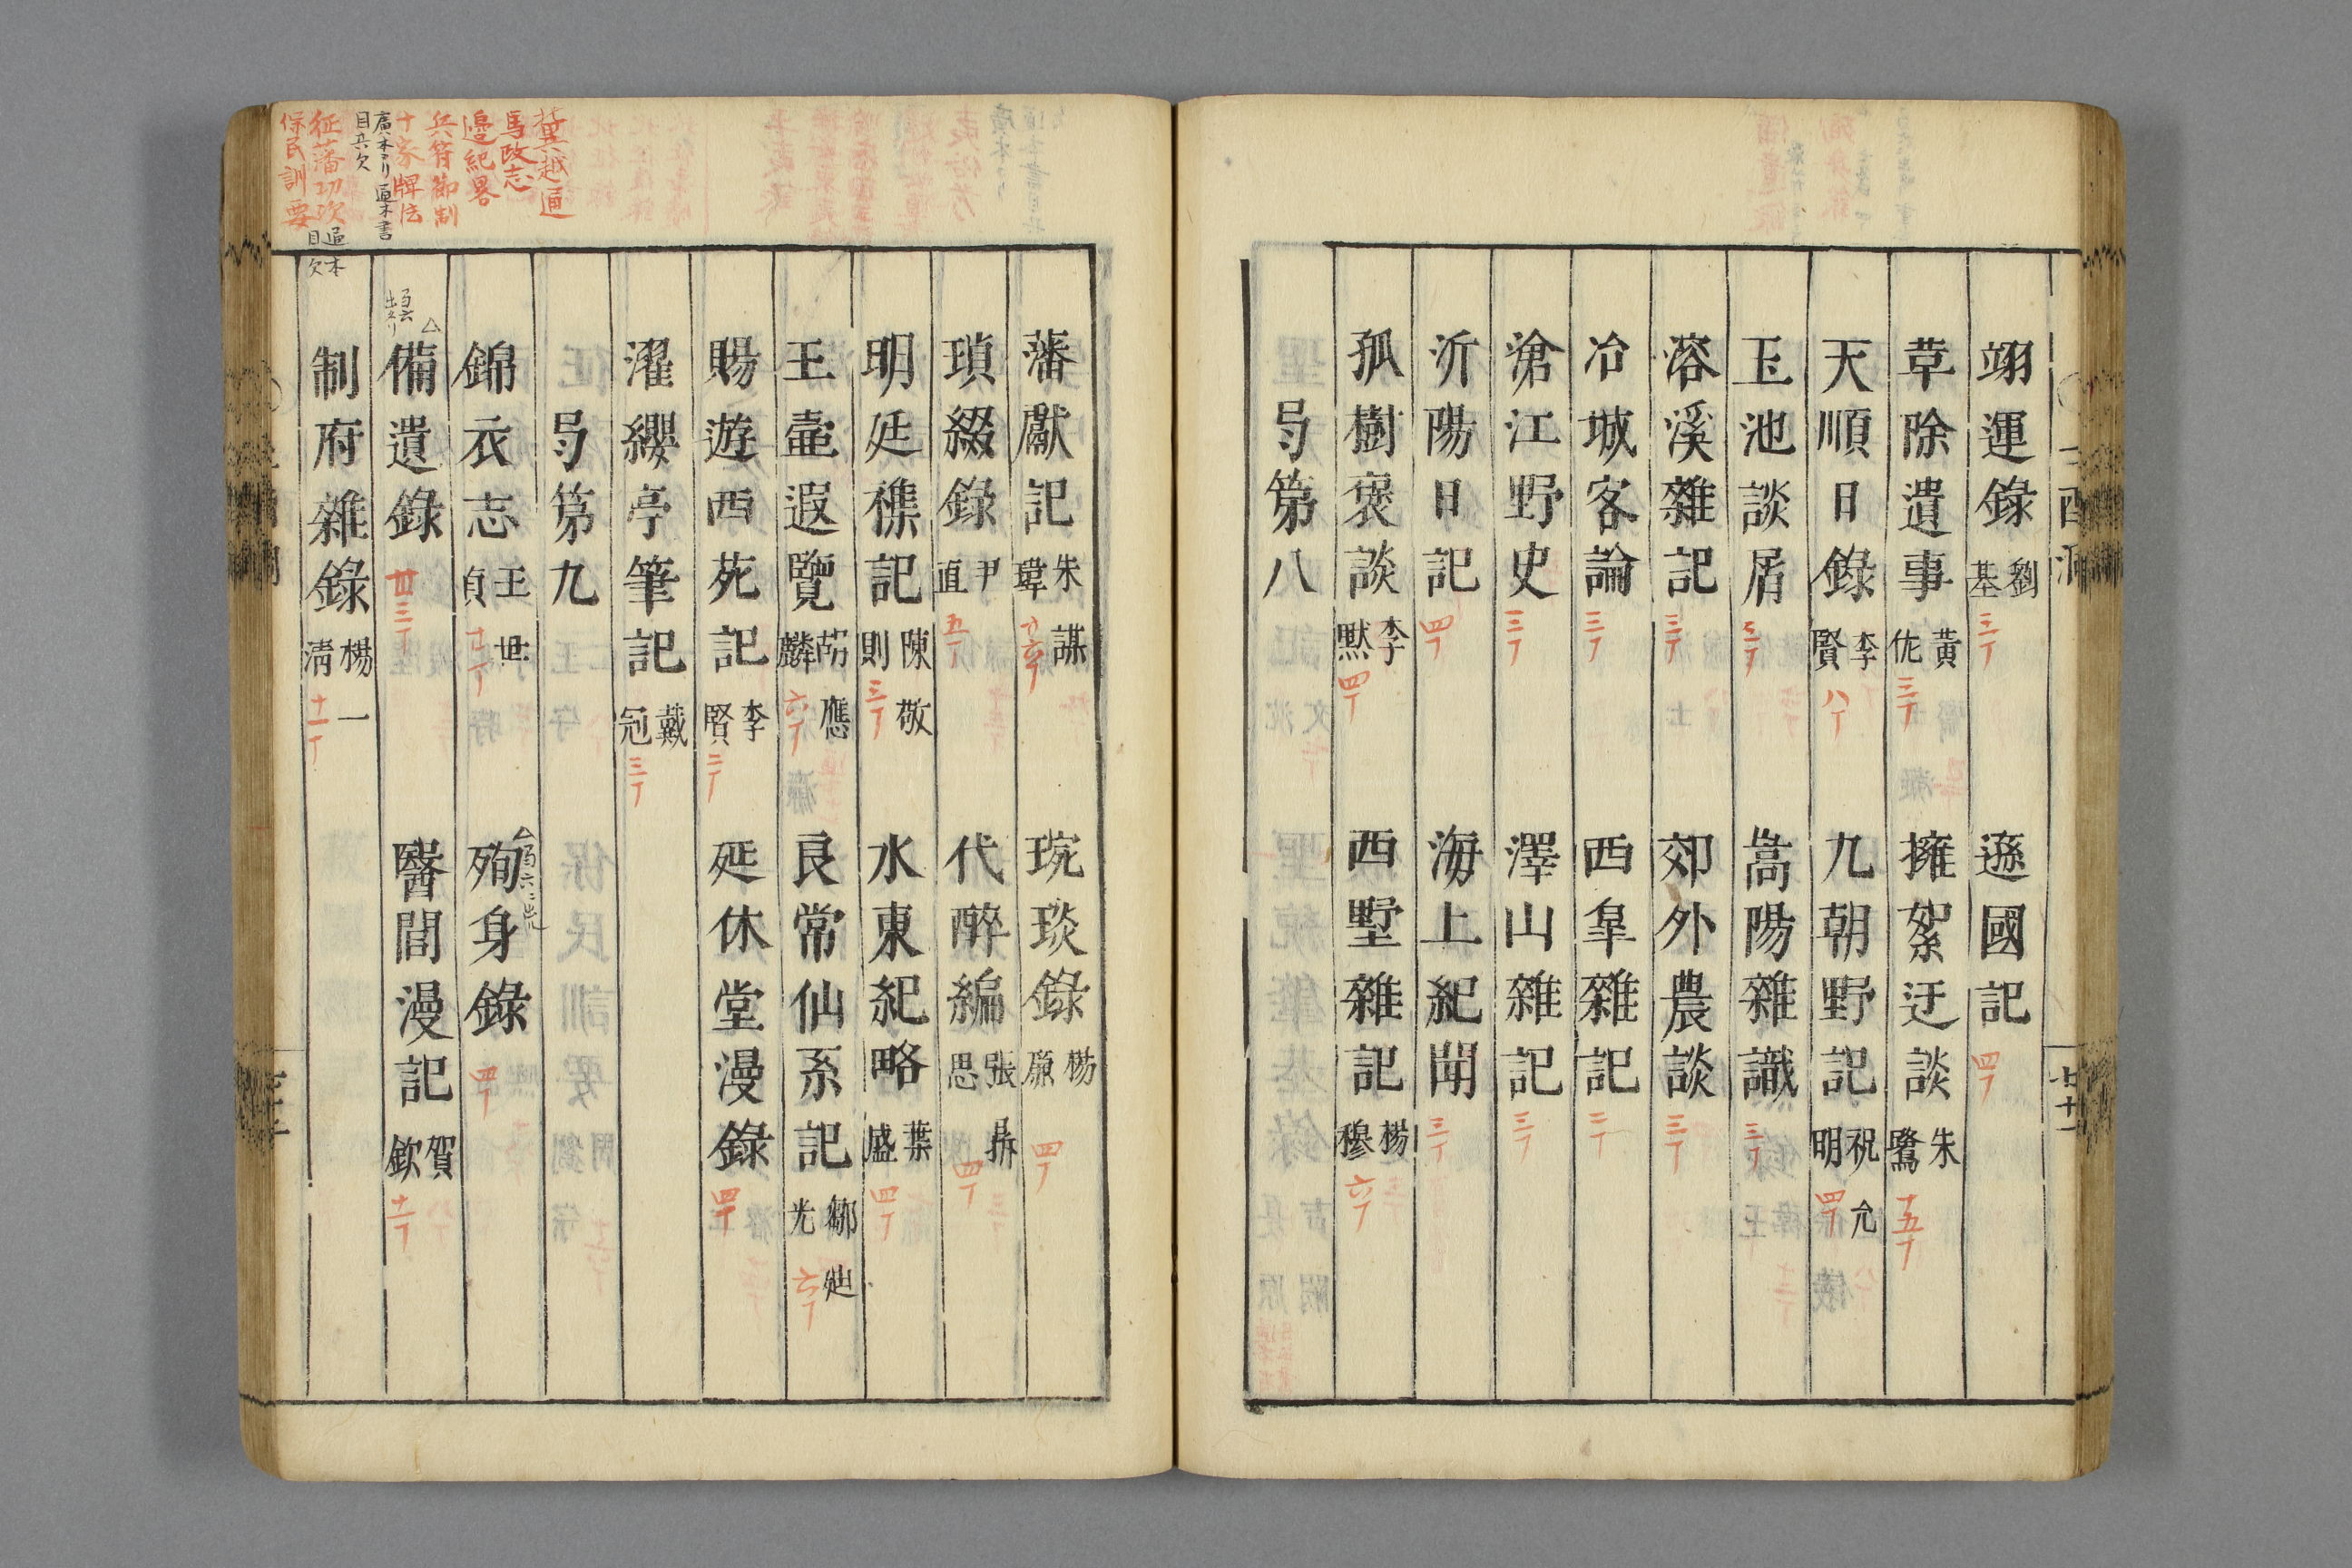 翊運錄 劉基 三丁 遜國記 四丁
草除遺事 黃佐 三丁 擁絮迂談 朱鷺 十五丁
天順日錄 李賢 八丁 九朝野記 祝允明 四丁
玉池談屑 三丁 嵩陽雜識 三丁
溶溪雜記 三丁 郊外農談 三丁
冶城客論 三丁 西皐雜記 三丁
滄江野史 三丁 澤山雜記 三丁
沂陽日記 四丁 海上紀聞 三丁
孤樹裒談 李默 四丁 西墅雜記 楊穆 六丁
弓第八
藩獻記 朱謀㙔 琬琰錄 楊廉 四丁
瑣綴錄 尹直 五丁 代醉編 張鼎思 四丁
明廷雜記 陳敬則 三丁 水東紀略 葉盛 四丁
王壼遐覽 茹應麟 六丁 良常仙系記 鄒迪光 六丁
賜遊西苑記 李賢 三丁 延休堂漫錄 四丁
濯纓亭筆記 戴冠 三丁
弓第九
錦衣志 王世貞 十丁 殉身錄 四丁
備遺錄 卅三丁 醫閭漫記 賀欽 十一丁
制府雜錄 楊一淸 十一丁
冀越通
馬政志
邊紀畧
兵符節制
十家牌法
征藩功次
保民訓要